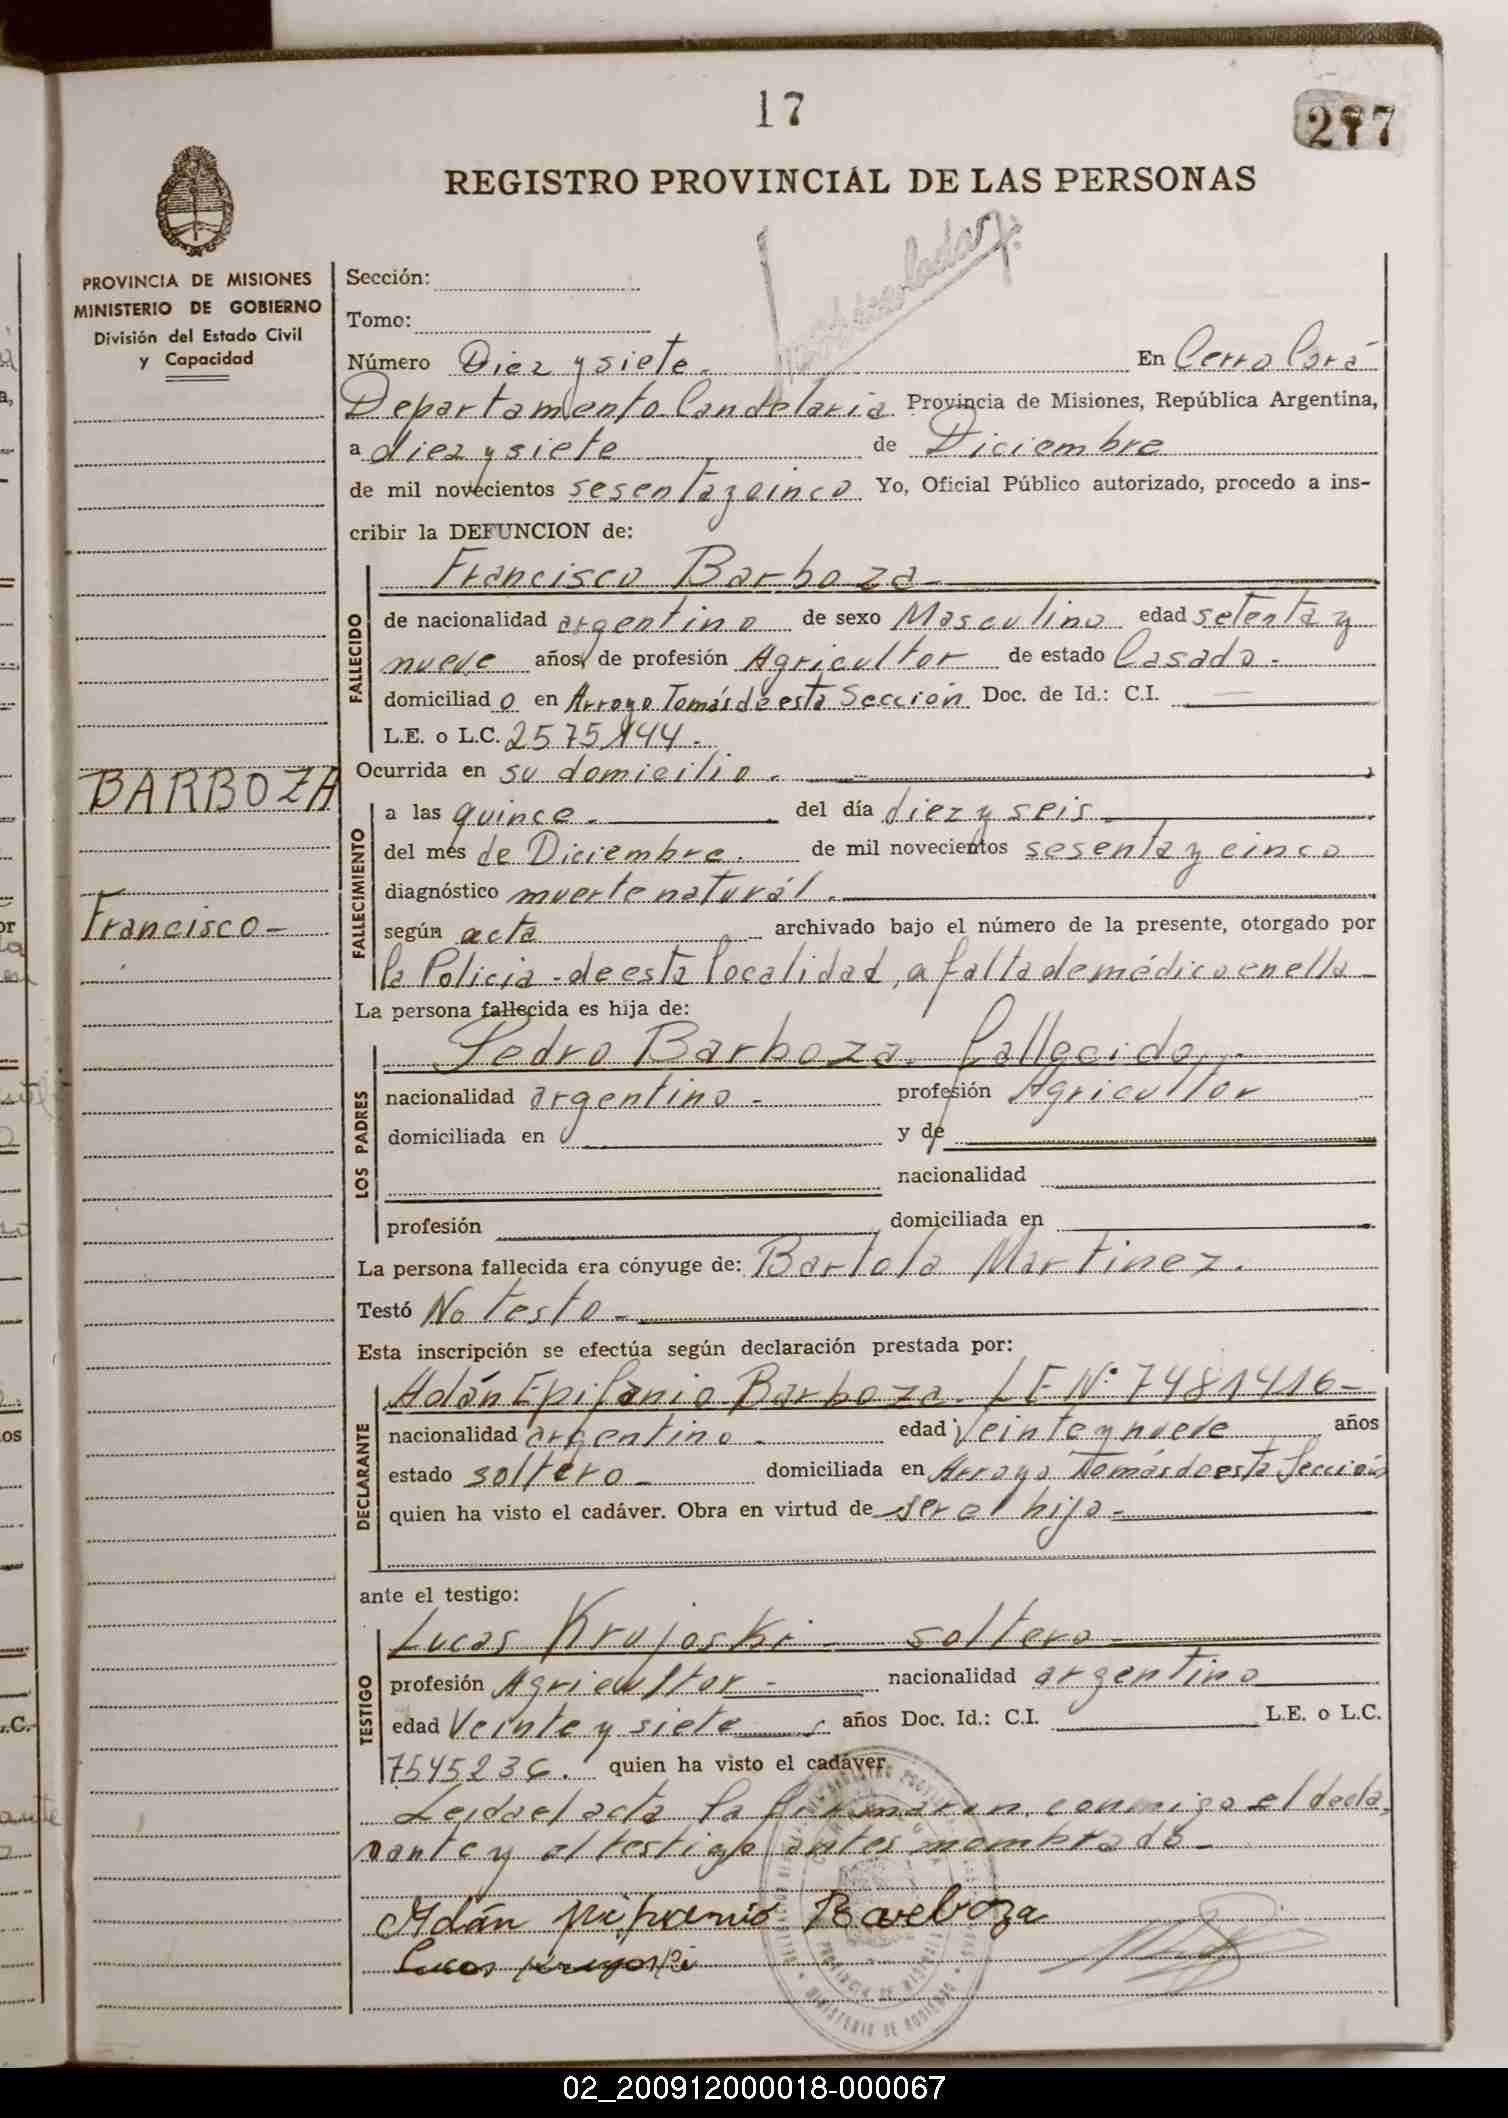 17
277
REGISTRO PROVINCIAL DE LAS PERSONAS
PROVINCIA DE MISIONES
MINISTERIO DE GOBIERNO
División del Estado Civil
y Capacidad
BARBOZA
Francisco-
Sección:
Tomo:
Número Diez y siete. En Cerro Corá
Departamento Candelaria Provincia de Misiones, República Argentina,
a diez y siete de Diciembre
de mil novecientos sesenta y cinco Yo, Oficial Público autorizado, procedo a ins-
cribir la DEFUNCION de:
FALLECIDO
Francisco Barboza
de nacionalidad argentino de sexo Masculino edad setenta y
nueve años, de profesión Agricultor de estado Casado.
domiciliado en Arroyo Tomás de esta Sección Doc. de Id.: C.I. —
L.E. o L.C. 2575144.
Ocurrida en su domicilio.
FALLECIMIENTO
a las quince. del día diez y seis.
del mes de Diciembre. de mil novecientos sesenta y cinco
diagnóstico muerte naturál.
según acta archivado bajo el número de la presente, otorgado por
la Policia - de esta localidad, a falta de médico en ella
La persona fallecida es hija de:
LOS PADRES
Pedro Barboza. fallecido.
nacionalidad argentino - profesión Agricultor
domiciliada en y de
nacionalidad
profesión domiciliada en
La persona fallecida era cónyuge de: Bartola Martinez.
Testó No testo -
Esta inscripción se efectúa según declaración prestada por:
DECLARANTE
Adán Epifanio Barboza. L E Nº 7481416-
nacionalidad argentino - edad Veinte y nueve años
estado soltero - domiciliada en Arroyo Tomás de esta Sección
quien ha visto el cadáver. Obra en virtud de ser el hijo -
ante el testigo:
TESTIGO
Lucas Krujoski - soltero
profesión Agricultor - nacionalidad argentino
edad Veinte y siete años Doc. Id.: C.I. L.E. o L.C.
7545236. quien ha visto el cadáver
Leida el acta la firmaron, conmigo el decla-
rante y el testigo antes nombrado -
Adán Barboza
Lucas
PROVINCIA DE MISIONES
MINISTERIO DE GOBIERNO
02_200912000018-000067